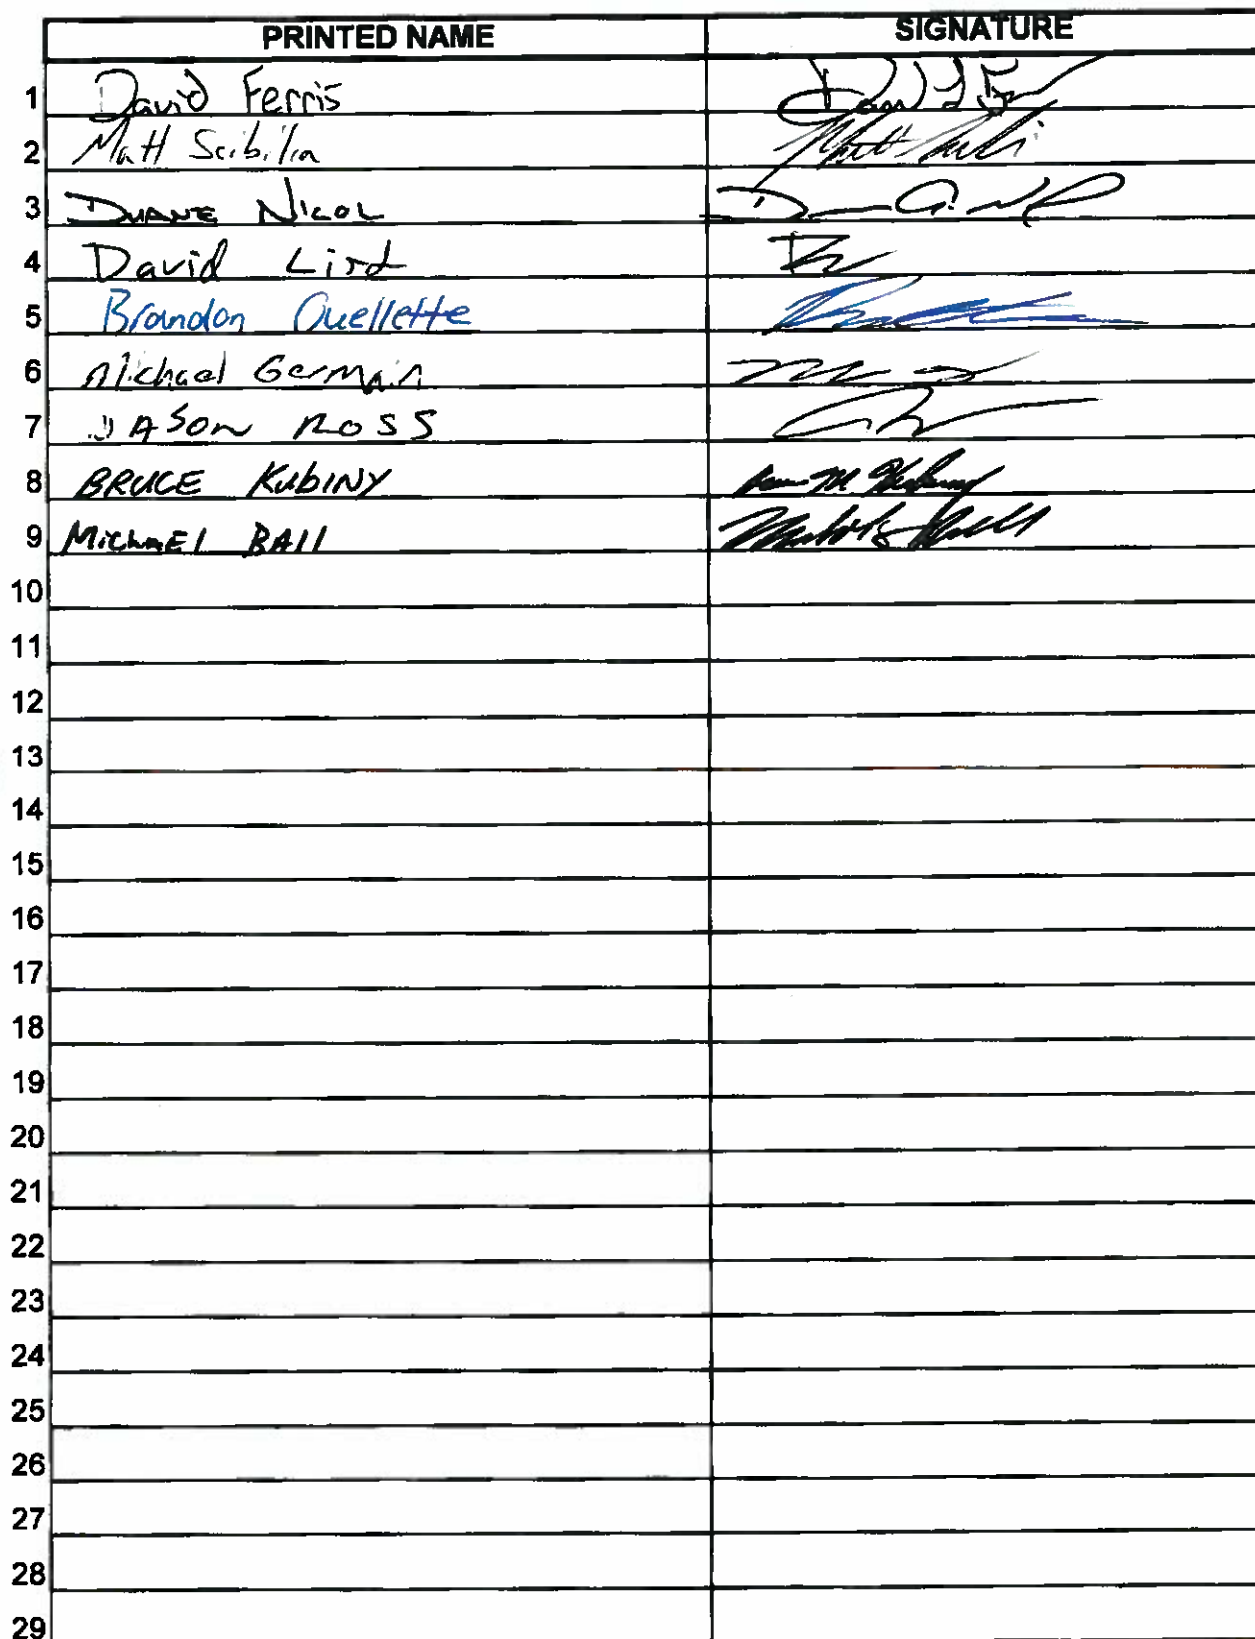 PRINTED NAME SIGNATURE
1 David Ferris
2 Matt Scibilia
3 DUANE NICOL
4 David Lird
5 Brandon Ouellette
6 Michael Germain
7 JASON ROSS
8 BRUCE KubINY
9 MichaEl BAll
10
11
12
13
14
15
16
17
18
19
20
21
22
23
24
25
26
27
28
29